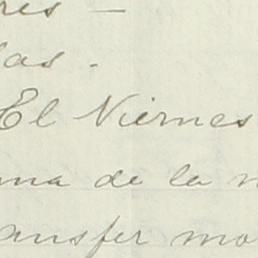 res —
las.
El Viernes
ana de la m
ansfer mo